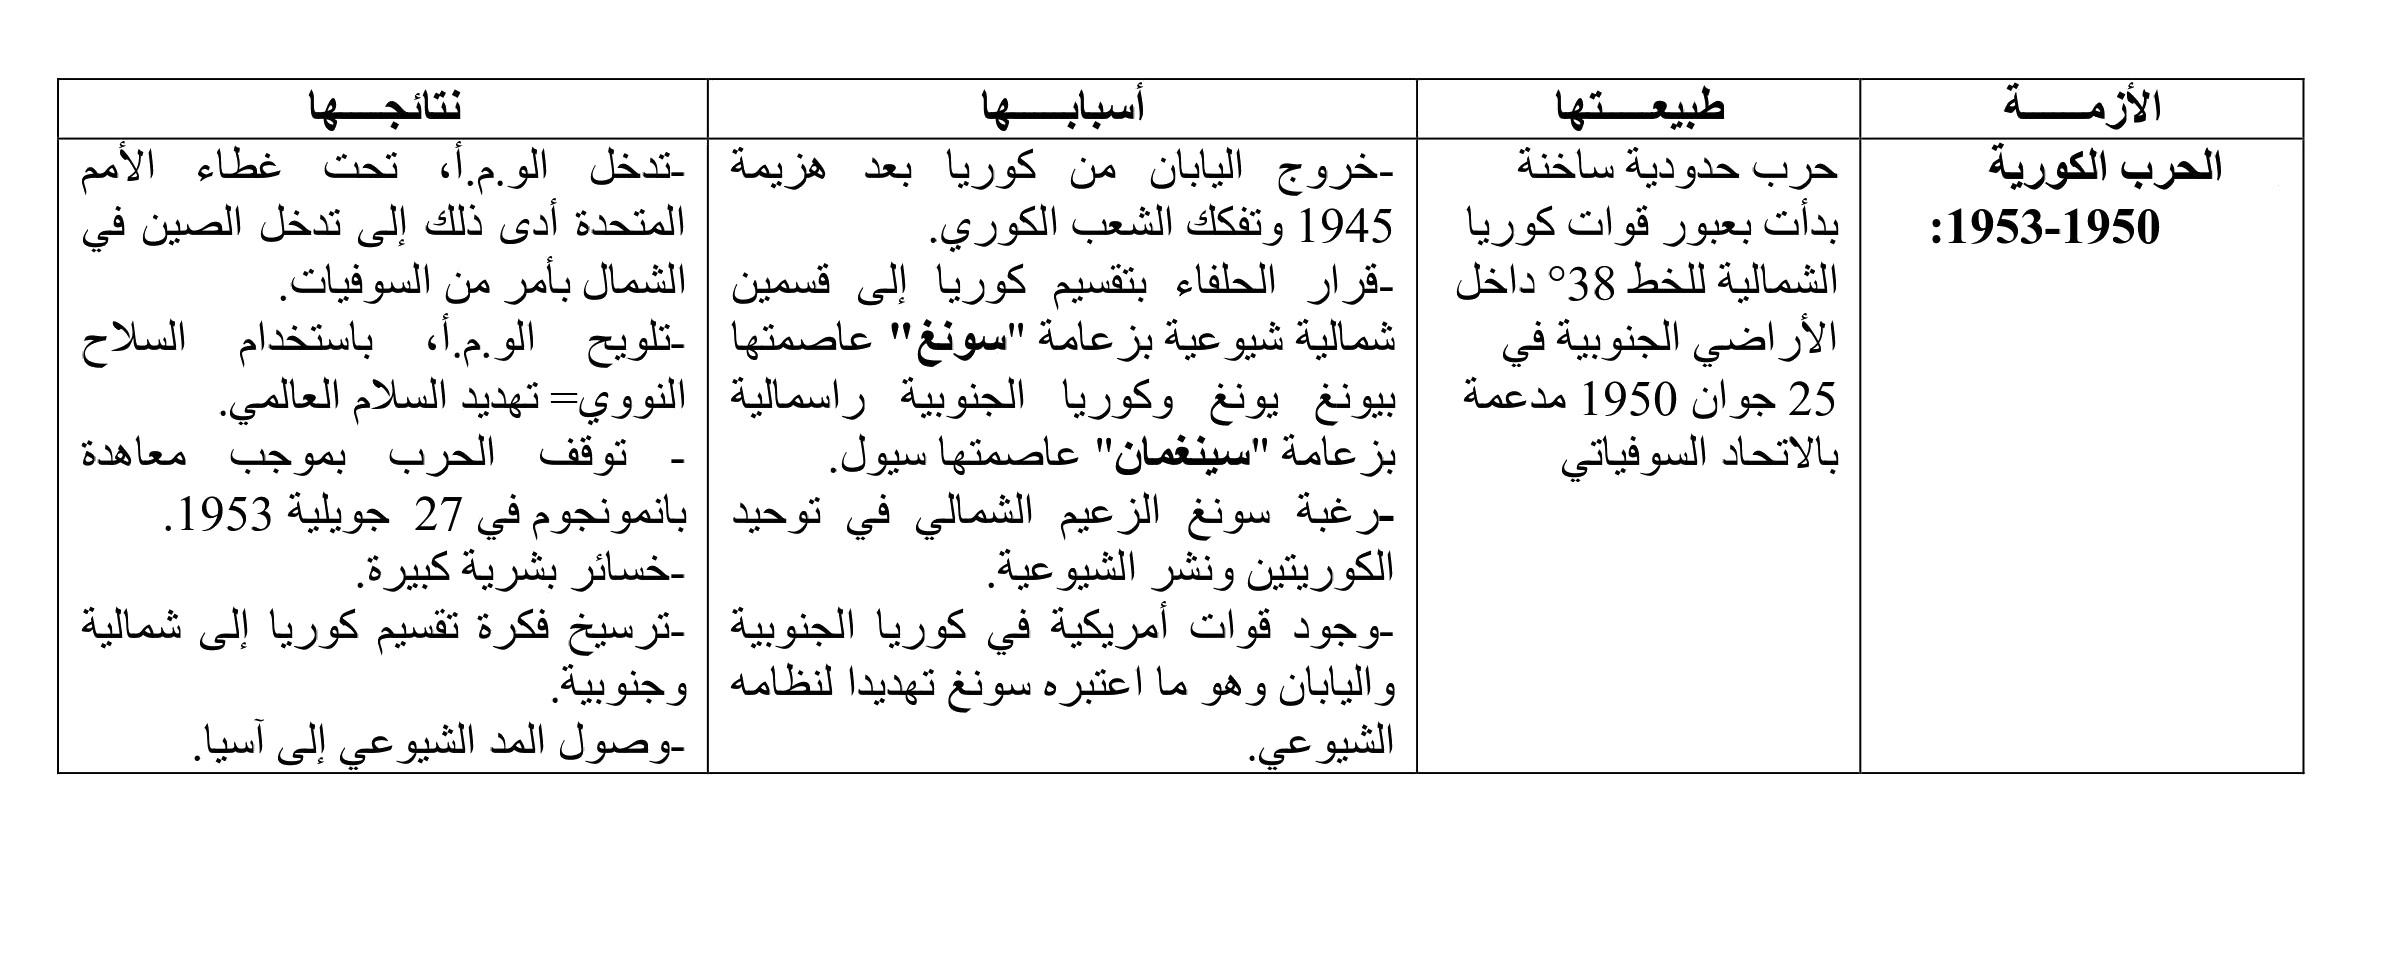 الأزمــــــة
طبيعــــتها
أسبابـــــها
نتائجــــها
الحرب الكورية
1950-1953:
حرب حدودية ساخنة
بدأت بعبور قوات كوريا
الشمالية للخط 38° داخل
الأراضي الجنوبية في
25 جوان 1950 مدعمة
بالاتحاد السوفياتي
-خروج اليابان من كوريا بعد هزيمة
1945 وتفكك الشعب الكوري.
-قرار الحلفاء بتقسيم كوريا إلى قسمين
شمالية شيوعية بزعامة "سونغ" عاصمتها
بيونغ يونغ وكوريا الجنوبية راسمالية
بزعامة "سينغمان" عاصمتها سيول.
-رغبة سونغ الزعيم الشمالي في توحيد
الكوريتين ونشر الشيوعية.
-وجود قوات أمريكية في كوريا الجنوبية
واليابان وهو ما اعتبره سونغ تهديدا لنظامه
الشيوعي.
-تدخل الو.م.أ، تحت غطاء الأمم
المتحدة أدى ذلك إلى تدخل الصين في
الشمال بأمر من السوفيات.
-تلويح الو.م.أ، باستخدام السلاح
النووي= تهديد السلام العالمي.
- توقف الحرب بموجب معاهدة
بانمونجوم في 27 جويلية 1953.
-خسائر بشرية كبيرة.
-ترسيخ فكرة تقسيم كوريا إلى شمالية
وجنوبية.
-وصول المد الشيوعي إلى آسيا.